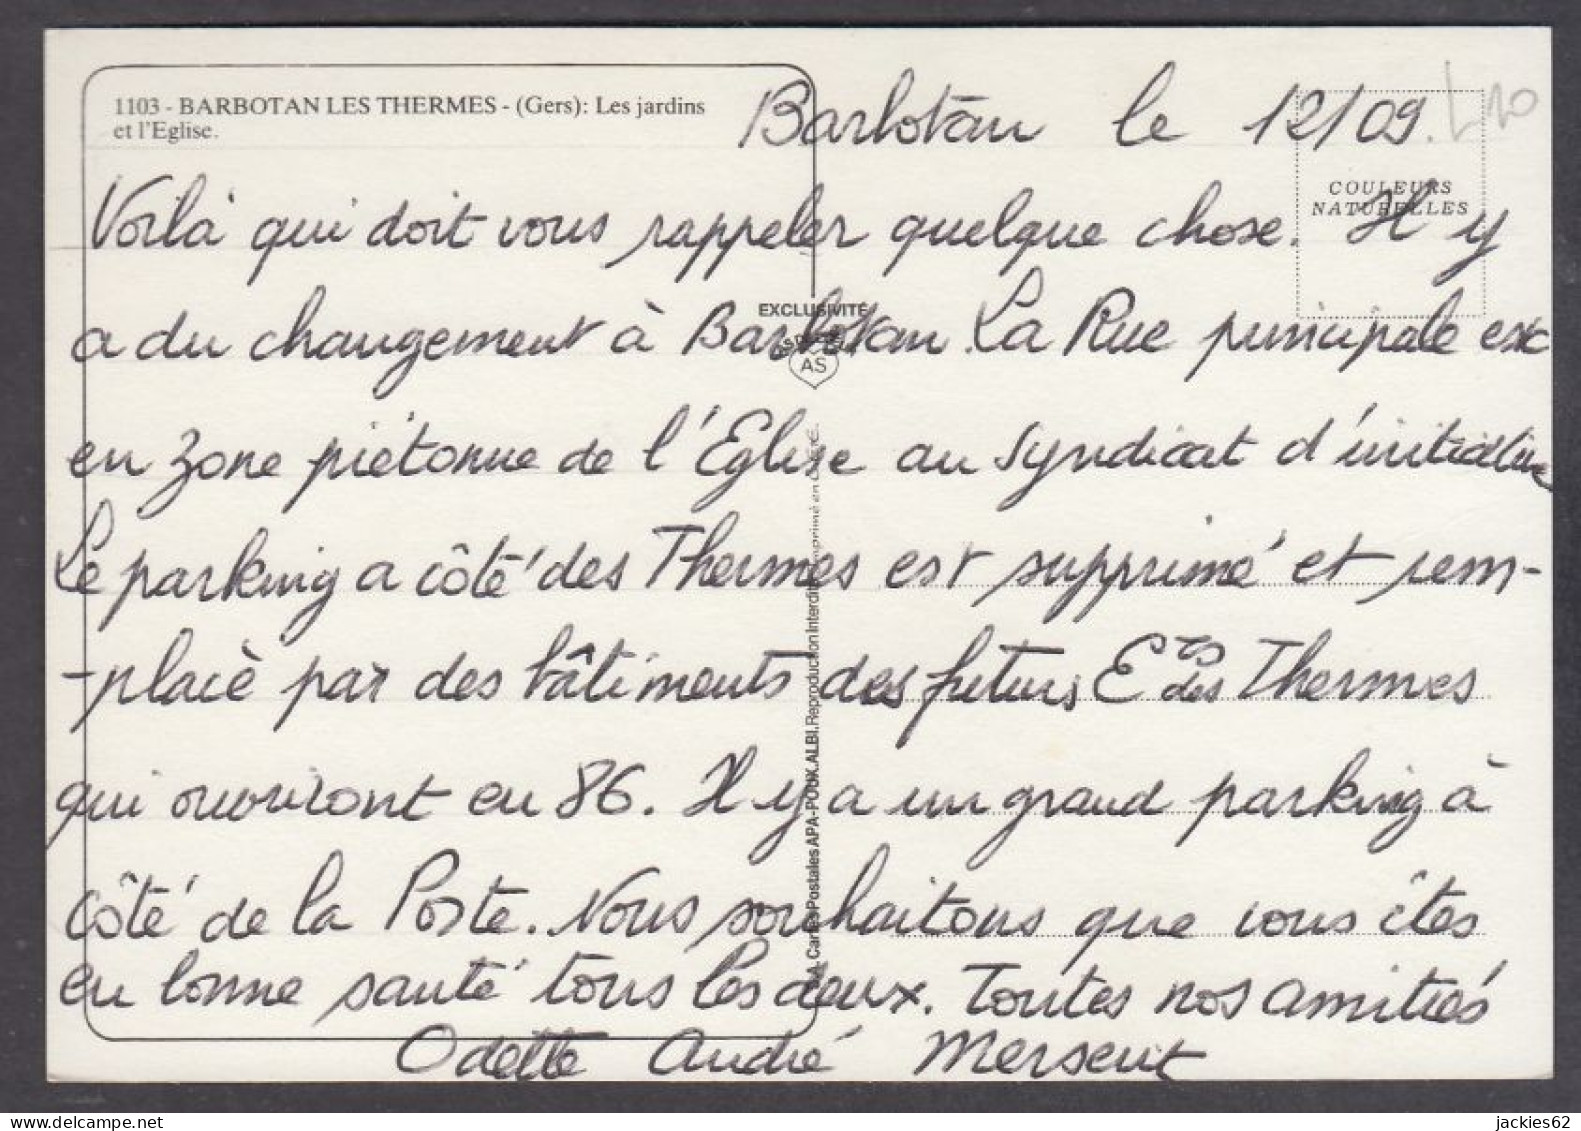 1103 - BARBOTAN LES THERMES - (Gers): Les jardins
et l'Eglise.
Barbotan le 12/09.
L10
COULEURS
NATURELLES
Voilà qui doit vous rappeler quelque chose. Il y
a du changement à Barbotan. La Rue principale est
en zone piétonne de l'Eglise au syndicat d'initiative
Le parking a côté des Thermes est supprimé et rem-
-placé par des bâtiments des futurs Ets des Thermes
qui ouvriront en 86. Il y a un grand parking à
côté de la Poste. Nous souhaitons que vous êtes
en bonne santé tous les deux. Toutes nos amitiés
Odette André Mersent
EXCLUSIVITÉ
AS
Cartes Postales APA-POUX. ALBI. Reproduction Interdite. Imprimé en
jackies62